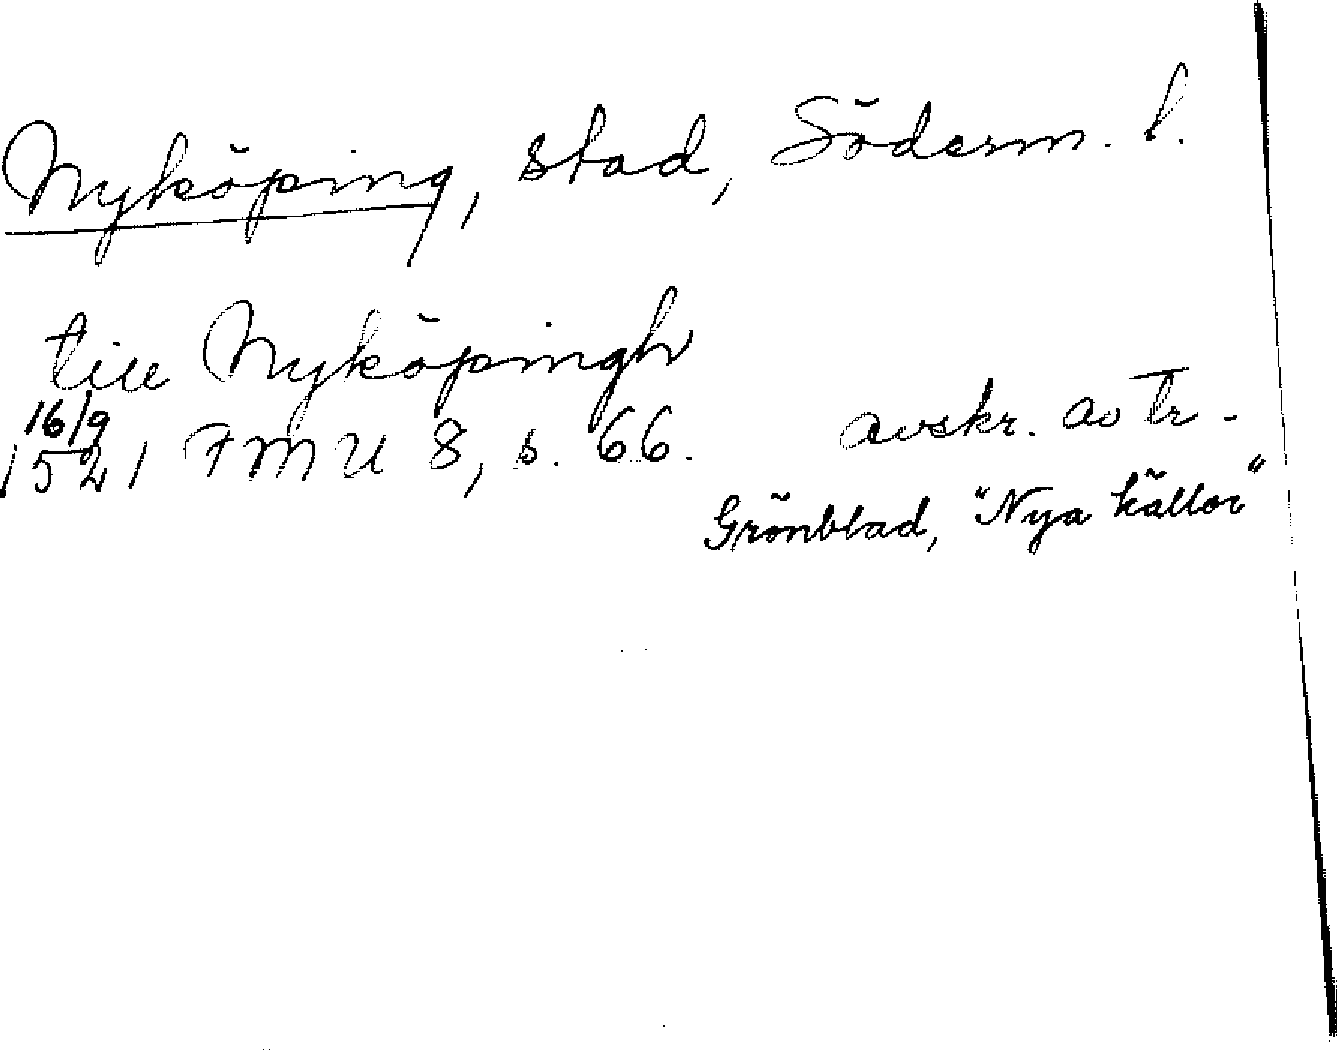 Nyköping, stad, Söderm. l.
till Nyköpingh
16/9
1521 FMU 8, s. 66. avskr. av tr.
Grönblad, "Nya källor"